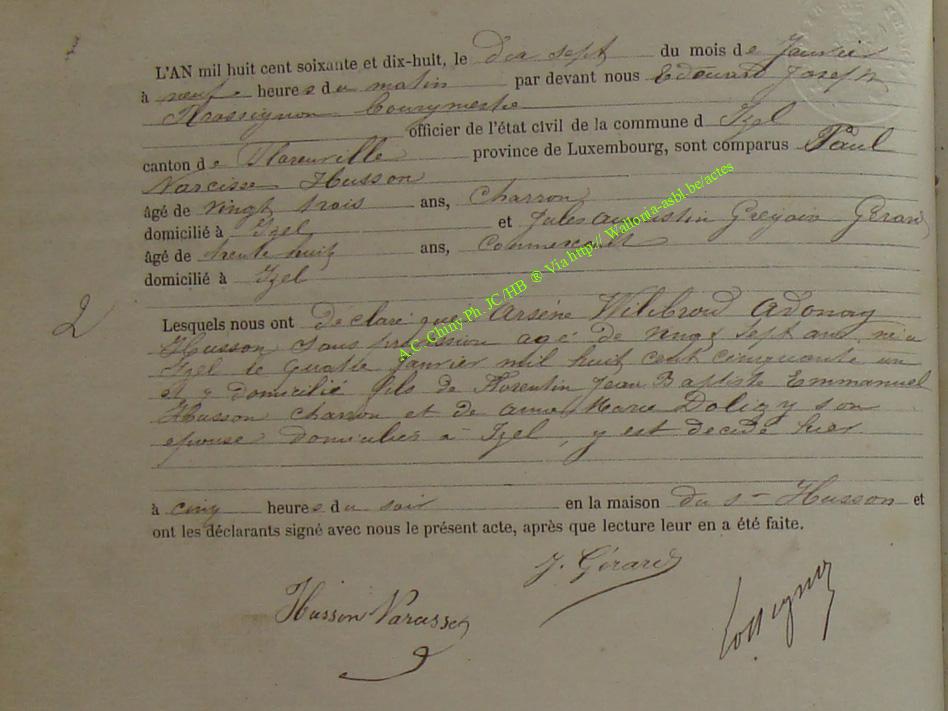 L'AN mil huit cent soixante et dix-huit, le Dix sept du mois de Janvier
à neuf heures du matin par devant nous Edouard Joseph
Rossignon Bourgmestre
officier de l'état civil de la commune d Izel
canton de Florenville province de Luxembourg, sont comparus Paul
Narcisse Husson
âgé de vingt trois ans, Charron
domicilié à Izel et Jules Augustin Grégoire Gérard
âgé de trente huit ans, Commerçant
domicilié à Izel
2
Lesquels nous ont déclaré que Arsène Wilibrod Adonay
Husson sans profession agé de vingt sept ans né a
Izel le quatre Janvier mil huit cent cinquante un
et y domicilié fils de Florentin Jean Baptiste Emmanuel
Husson charron et de Anne Marie Doligy son
epouse domiciliés à Izel, y est décidé hier
à cinq heures du soir en la maison du Sr Husson et
ont les déclarants signé avec nous le présent acte, après que lecture leur en a été faite.
J. Gérard
Husson Narcisse
Rossignon
A.C. Chiny Ph. JC/HB ® Via http:// Wallonia-asbl.be/actes